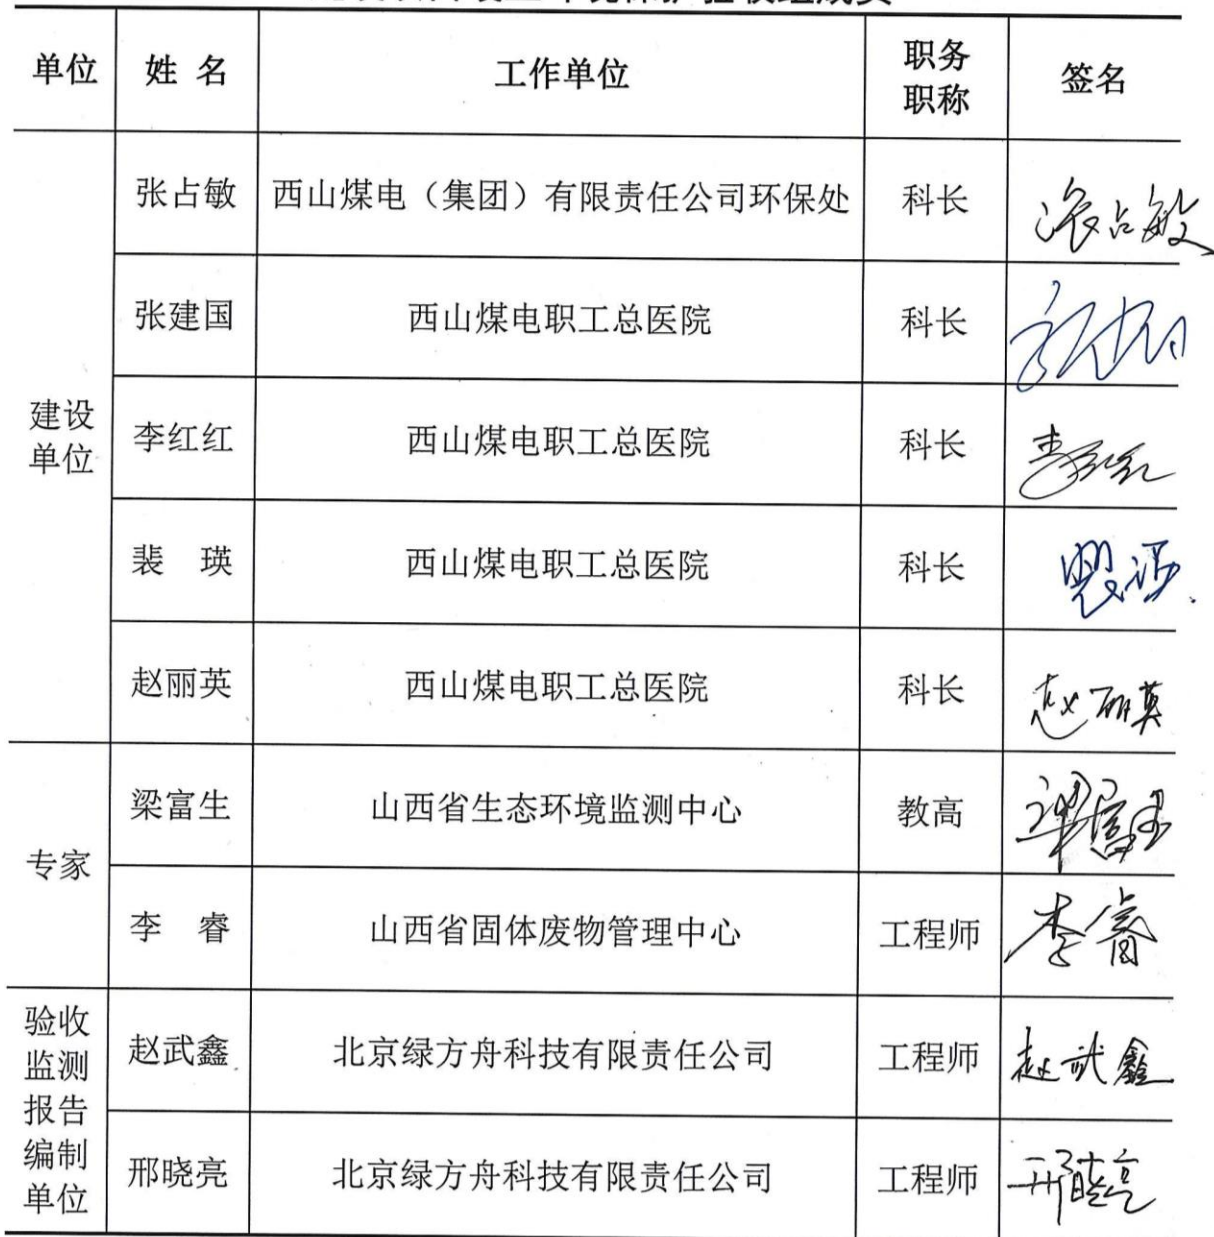 单位 姓 名 工作单位 职务职称 签名
建设单位
张占敏 西山煤电（集团）有限责任公司环保处 科长 张占敏
张建国 西山煤电职工总医院 科长
李红红 西山煤电职工总医院 科长 李红红
裴 瑛 西山煤电职工总医院 科长
赵丽英 西山煤电职工总医院 科长 赵丽英
专家
梁富生 山西省生态环境监测中心 教高 梁富生
李 睿 山西省固体废物管理中心 工程师 李睿
验收监测报告编制单位
赵武鑫 北京绿方舟科技有限责任公司 工程师 赵武鑫
邢晓亮 北京绿方舟科技有限责任公司 工程师 邢晓亮